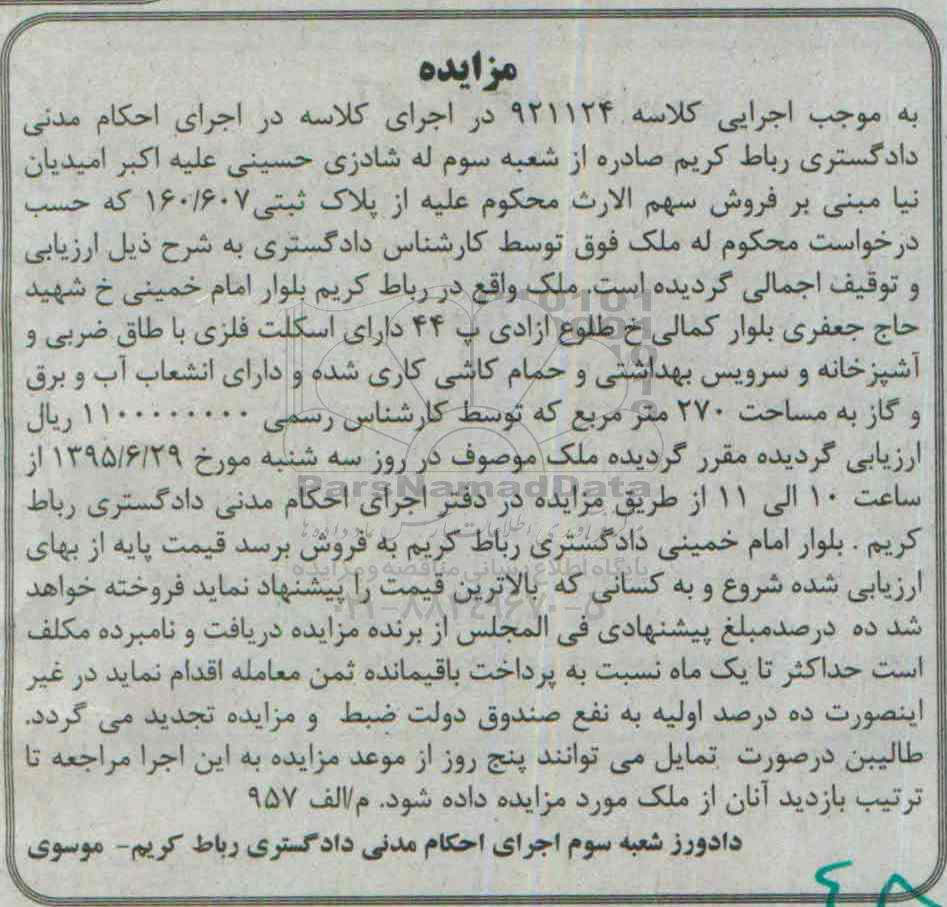 مزایده
به موجب اجرایی کلاسه ۹۲۱۱۲۴ در اجرای کلاسه در اجرای احکام مدنی
دادگستری رباط کریم صادره از شعبه سوم له شادزی حسینی علیه اکبر امیدیان
نیا مبنی بر فروش سهم الارث محکوم علیه از پلاک ثبتی۱۶۰/۶۰۷ که حسب
درخواست محکوم له ملک فوق توسط کارشناس دادگستری به شرح ذیل ارزیابی
و توقیف اجمالی گردیده است. ملک واقع در رباط کریم بلوار امام خمینی خ شهید
حاج جعفری بلوار کمالی خ طلوع ازادی پ ۴۴ دارای اسکلت فلزی با طاق ضربی و
آشپزخانه و سرویس بهداشتی و حمام کاشی کاری شده و دارای انشعاب آب و برق
و گاز به مساحت ۲۷۰ متر مربع که توسط کارشناس رسمی ۱۱۰۰۰۰۰۰۰۰ ریال
ارزیابی گردیده مقرر گردیده ملک موصوف در روز سه شنبه مورخ ۱۳۹۵/۶/۲۹ از
ساعت ۱۰ الی ۱۱ از طریق مزایده در دفتر اجرای احکام مدنی دادگستری رباط
کریم . بلوار امام خمینی دادگستری رباط کریم به فروش برسد قیمت پایه از بهای
ارزیابی شده شروع و به کسانی که بالاترین قیمت را پیشنهاد نماید فروخته خواهد
شد ده درصدمبلغ پیشنهادی فی المجلس از برنده مزایده دریافت و نامبرده مکلف
است حداکثر تا یک ماه نسبت به پرداخت باقیمانده ثمن معامله اقدام نماید در غیر
اینصورت ده درصد اولیه به نفع صندوق دولت ضبط و مزایده تجدید می گردد.
طالبین درصورت تمایل می توانند پنج روز از موعد مزایده به این اجرا مراجعه تا
ترتیب بازدید آنان از ملک مورد مزایده داده شود. م/الف ۹۵۷
دادورز شعبه سوم اجرای احکام مدنی دادگستری رباط کریم- موسوی
ParsNamadData
پایگاه اطلاع رسانی مناقصه و مزایده
۰۲۱-۸۸۳۴۹۶۷۰-۵